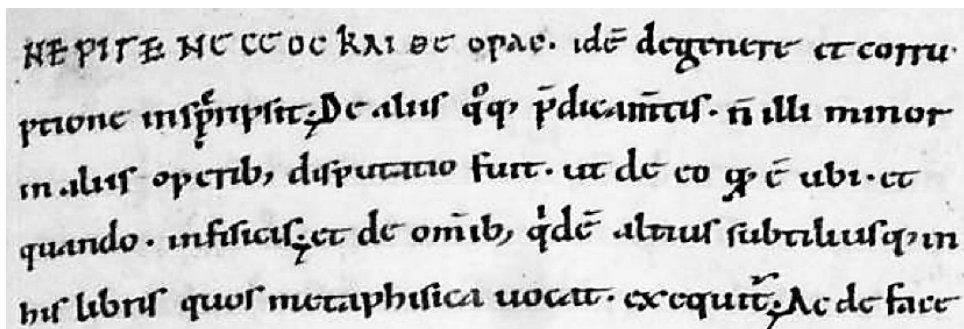 ΝΕΡΙΓΕ ΝΕϹΕΟϹ ΚΑΙ ΘΕ ΟΡΑϹ. idē degenere et corru
ptione inscͥpsit; De aliis qͦq; p̄dicam̄tis. n̄ illi minor
in aliis operib; disputatio fuit. ut de eo qđ ē ubi. et
quando. infisicis; et de om̄ib; qͥdē altius subtiliusq; in
his libris quos metaphisica uocat. exequit᷑; Ac de face